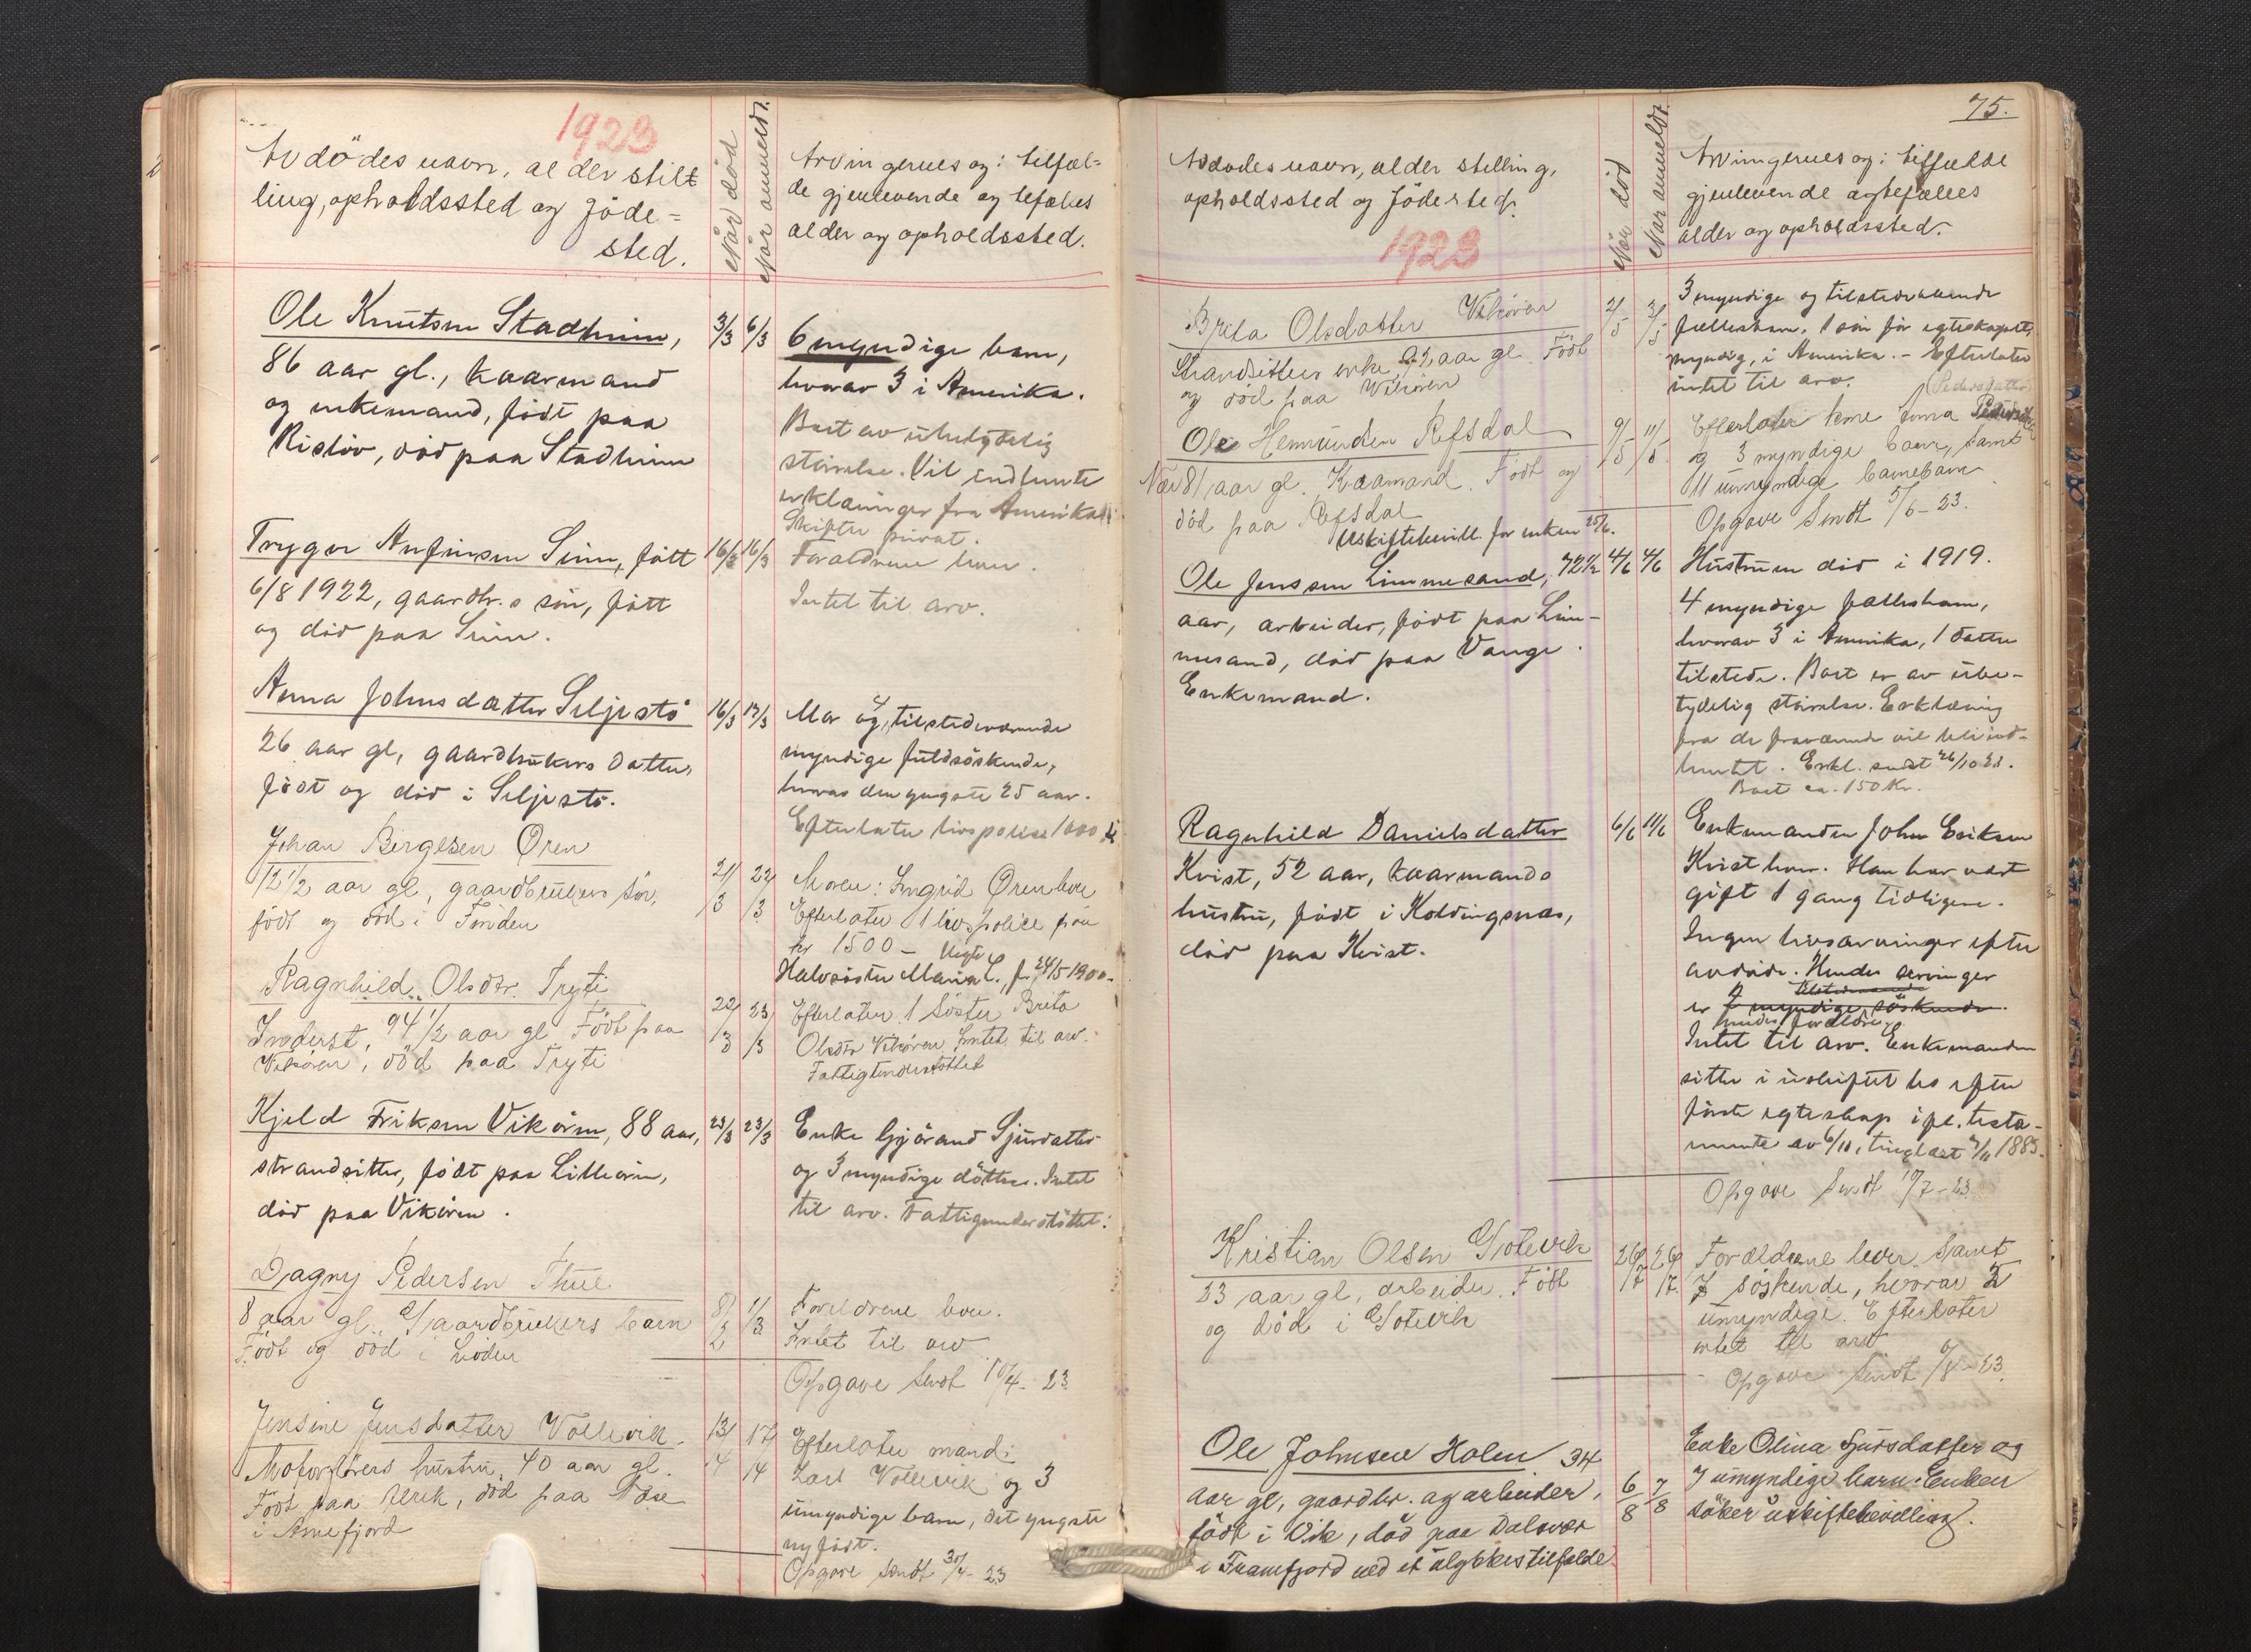 1923
Avdödes navn, alder stilt
ling, opholdssted og föde=
sted.
Når död
Når anmeldt.
Arvingernes og i tilfæl=
de gjenlevende ægtefælles
alder og opholdssted.
Ole Knutsen Stadheim,
86 aar gl., kaarmand
og enkemand, födt paa
Risløv, död paa Stadheim
3/3 6/3
6 myndige barn,
hvorav 3 i Amerika.
Boet av ubetydelig
størrelse. Vil indhente
erklæringer fra Amerika.
Skifter privat.
Trygve Anfinsen Sinn, født
6/8 1922, gaardbr.s søn, født
og död paa Sinn.
16/3 16/3
Forældrene lever.
Intet til arv.
Anna Johnsdatter Seljestö
26 aar gl, gaardbrukers datter,
födt og död i Seljestö.
16/3 17/3
Mor og 4 tilstedeværende
myndige fuldsöskende,
hvorav den yngste 25 aar.
Efterlater livspolise 1000 kr
Johan Bergesen Øren
12 1/2 aar gl, gaardbrukers sön,
födt og död i Finden
21/3 22/3
Moren: Ingrid Øren lever
Efterlater 1 livspolice paa
kr 1500 –
Halvsöster Maria L. f. 24/5 1900.
Ragnhild Olsdtr. Tryti
Inderst, 94 1/2 aar gl Födt paa
Vikören, död paa Tryti
22/3 23/3
Efterlater 1 söster Brita
Olsdtr Vikören Intet til arv.
Fattigunderstöttet
Kjeld Eriksen Vikøren, 88 aar,
strandsitter, födt paa Lilleøren,
död paa Vikøren.
23/3 23/3
Enke Gjörand Sjursdatter
og 3 myndige döttre. Intet
til arv. Fattigunderstöttet.
Dagny Pedersen Thue
8 aar gl. Gaardbrukers barn
Födt og död i
8/2 1/3
Forældrene lever.
Intet til arv
Opgave sendt 10/4 - 23
Jensine Jensdatter Vollevik.
Motorförers hustru, 40 aar gl.
Födt paa Urvik, död paa Næse
i Arnefjord
13/4 17/4
Efterlater mand:
Lars Vollevik og 3
umyndige barn, det yngste
nyfødt.
Opgave sendt 30/4 - 23
75.
Avdødes navn, alder stilling,
opholdssted og födested.
1923
Når död
Når anmeldt.
Arvingernes og i tilfælde
gjenlevende ægtefælles
alder og opholdssted.
Brita Olsdatter Vikøren
Strandsitters enke, 92 aar gl. Födt
og död paa Vikören
2/5 3/5
3 myndige og tilstedeværende
fællesbarn. 1 sön för egteskapet,
myndig, i Amerika. – Efterlater
intet til arv.
Ole Hermunden Refsdal
Nær 81 aar gl. Kaarmand. Födt og
död paa Refsdal
Uskiftebevill. for enken 25/6.
9/5 11/5
Pedersdatter
Efterlater kone Anna
og 3 myndige barn, samt
11 umyndige barnebarn
Opgave sendt 5/6 - 23.
Ole Jensen Limmesand, 72 1/2
aar, arbeider, födt paa Lim-
mesand, död paa Vange.
Enkemand.
4/6 4/6
Hustruen död i 1919.
4 myndige fællesbarn,
hvorav 3 i Amerika, 1 datter
tilstede. Boet er av ube-
tydelig størrelse. Erklæring
fra de fraværende vil bli ind-
hentet. Erkl. sendt 26/10 23.
Boet ca. 150 Kr.
Ragnhild Danielsdatter
Kvist, 52 aar, kaarmands
hustru, födt i Holdingsnæs,
död paa Kvist.
6/6 11/6
Enkemanden John Eriksen
Kvist lever. Han har vært
gift 1 gang tidligere.
Ingen livsarvinger efter
avdøde. Hendes arvinger
tilstedeværende
er 7 myndige söskende.
hendes forældre.
Intet til arv. Enkemanden
sitter i uskiftet bo efter
förste egteskap ifl. testa-
mente av 6/10, tinglæst 7/11 1885.
Opgave sendt 10/7 - 23
Kristian Olsen Gotevik
23 aar gl, arbeider. Födt
og död i Gotevik
26/7 26/7.
Forældrene lever samt
7 söskende, hvorav 5
umyndige. Efterlater
intet til arv
Opgave sendt 9/8 - 23.
Ole Johnsen Holen 34
aar gl, gaardbr. og arbeider,
födt i Vik, död paa Dalsvær
i Framfjord ved et ulykkestilfælde
6/8 7/8
Enke Olina Sjursdatter og
7 umyndige barn. Enken
söker uskiftebevilling.